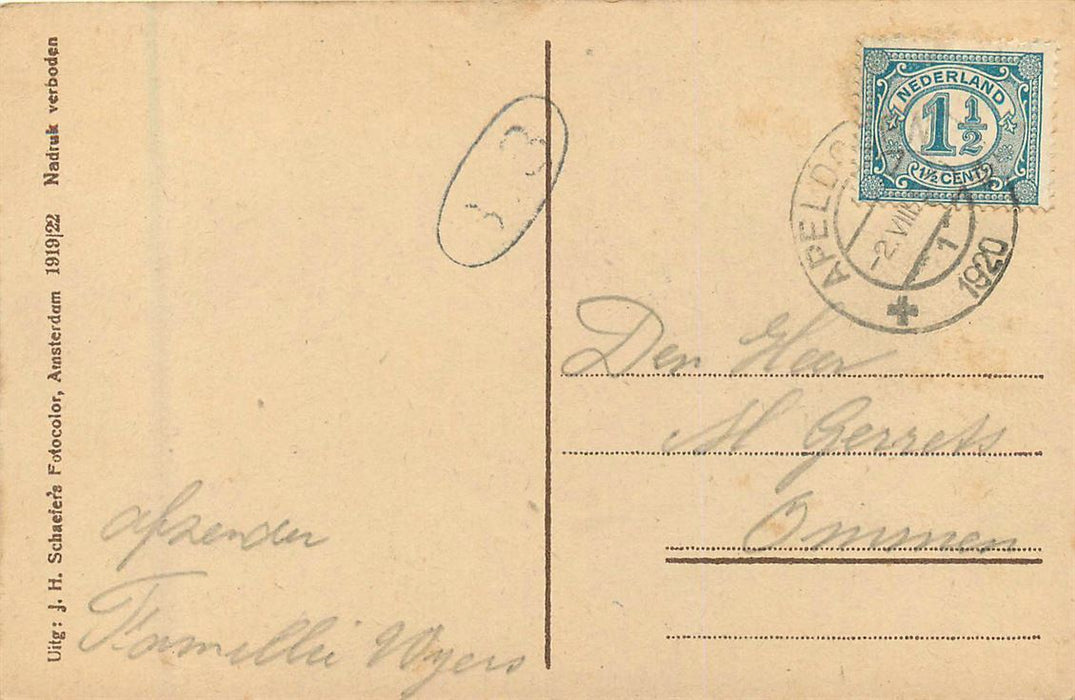 Uitg: J. H. Schaefer's Fotocolor, Amsterdam 1919|22 Nadruk verboden
NEDERLAND
1 1/2
1 1/2 CENT
APELDO
-2.VIII
1
1920
Den Heer
M Gerrets
Ommen
afzender
Famillie Wyers